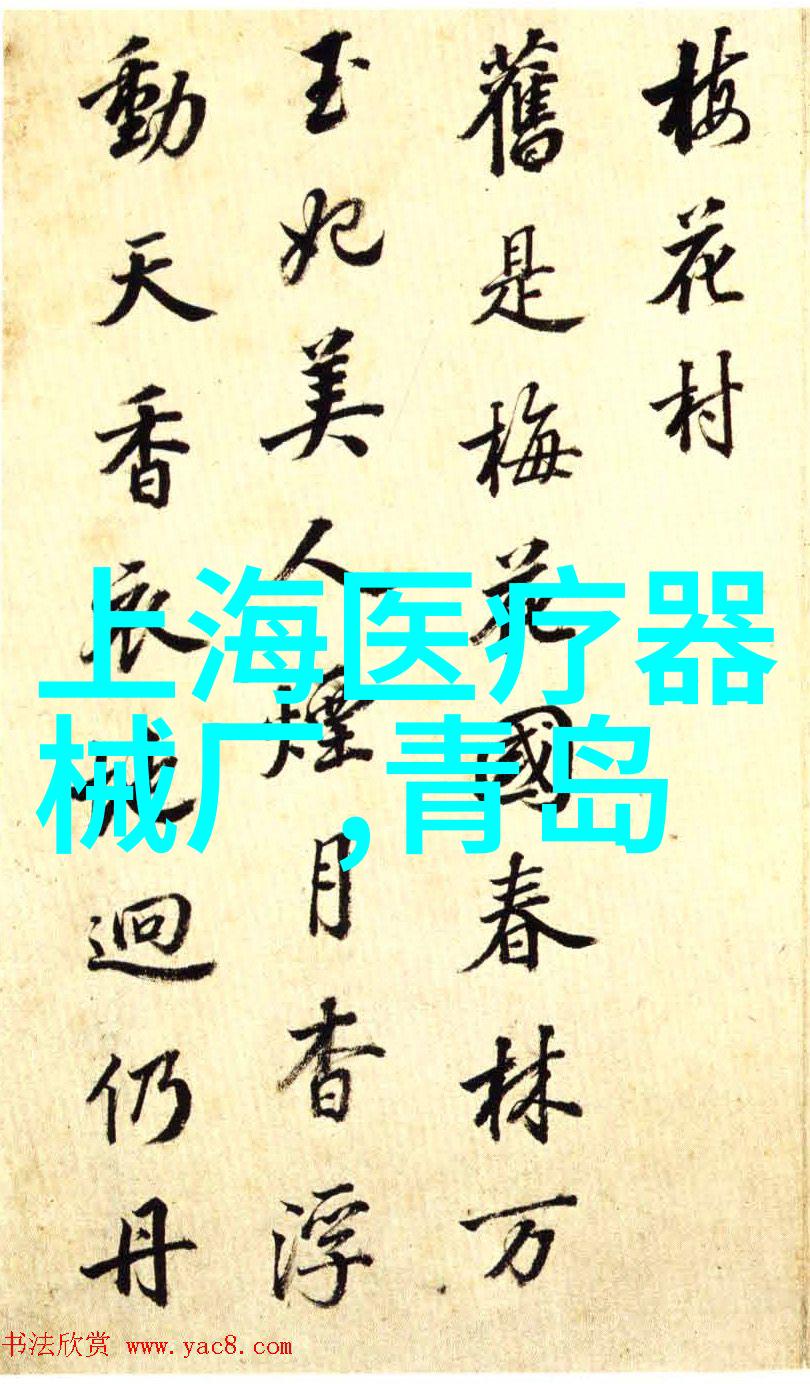 梅花村
舊是梅花國春林万
玉妃美人煙月杳浮
動天香衣逈仍丹
上海医疗器
械厂,青岛
书法欣赏 www.yac8.com